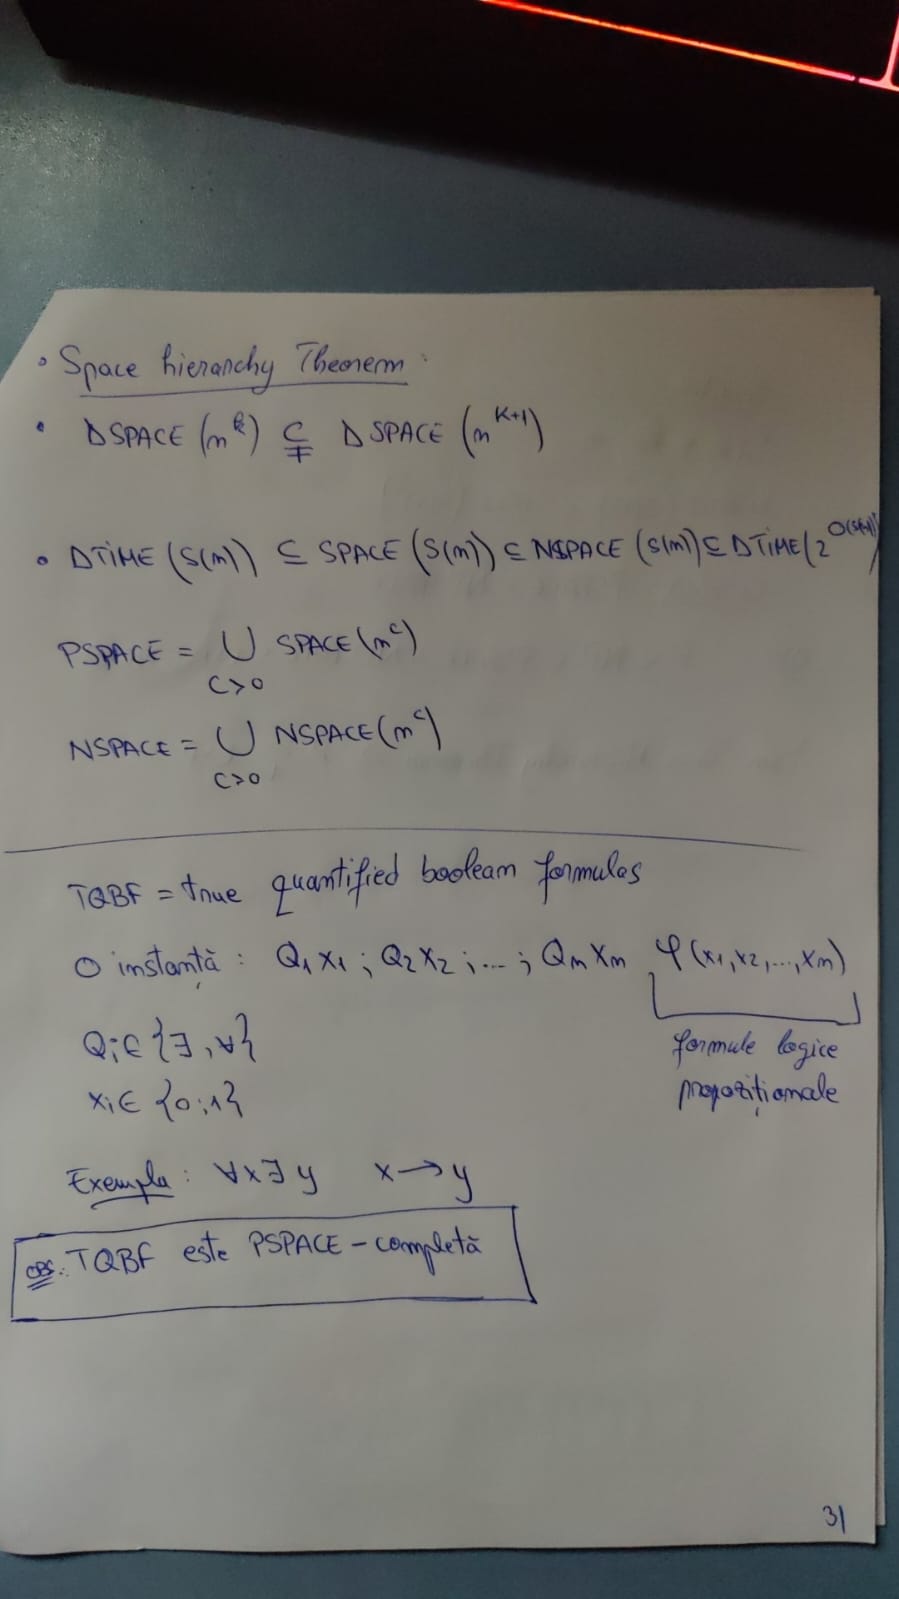 • Space hierarchy Theorem:
• DSPACE (n^k) ⊊ DSPACE (n^{k+1})
• DTIME (S(n)) ⊆ SPACE (S(n)) ⊆ NSPACE (S(n)) ⊆ DTIME (2^{O(S(n))})
PSPACE = ∪ SPACE (n^c)
c>0
NSPACE = ∪ NSPACE (n^c)
c>0
TQBF = true quantified boolean formulas
O instanță: Q₁x₁; Q₂x₂; ...; Qₙxₙ φ(x₁,x₂,...,xₙ)
Qᵢ∈{∃,∀}
formule logice
xᵢ∈ {0;1}
propoziționale
Exemplu: ∀x∃y x→y
OBS.: TQBF este PSPACE-completă
31